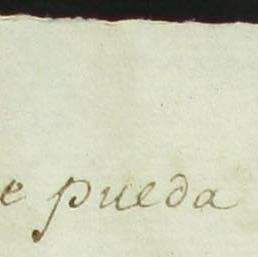 e pueda